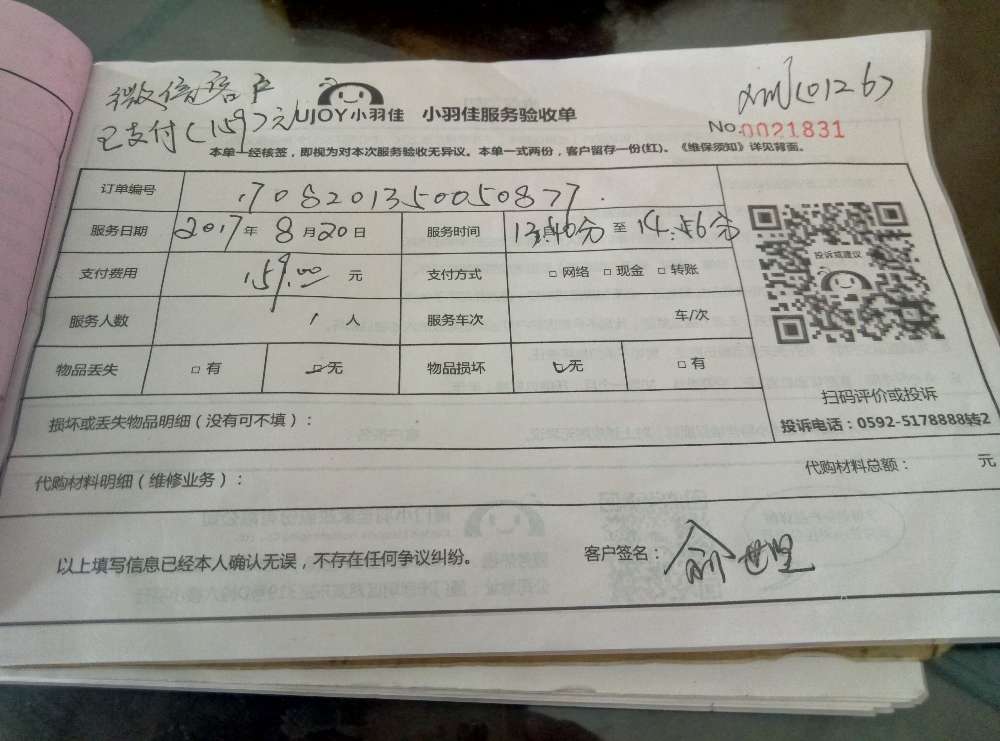 微信客户
已支付(159)元
UJOY小羽佳 小羽佳服务验收单
xmj(0126)
No.0021831
本单一经核签，即视为对本次服务验收无异议。本单一式两份，客户留存一份(红)。《维保须知》详见背面。
订单编号 1708201350050877
服务日期 2017年8月20日 服务时间 13:40分至14:56分
支付费用 159.00 元 支付方式 □网络 □现金 □转账
服务人数 1 人 服务车次 车/次
物品丢失 □有 □无 物品损坏 □无 □有
投诉或建议
扫码评价或投诉
投诉电话：0592-5178888转2
损坏或丢失物品明细（没有可不填）：
代购材料明细（维修业务）： 代购材料总额： 元
以上填写信息已经本人确认无误，不存在任何争议纠纷。 客户签名：俞世堅